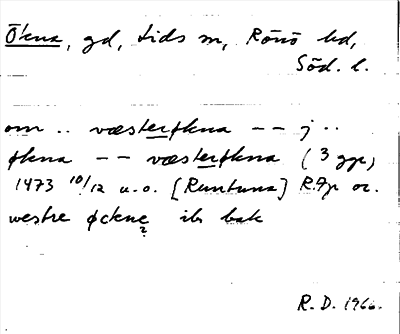 Ökna, gd, Lids sn, Rönö hd,
Söd. l.
om .. væsterøkna -- j ..
økna -- væsterøkna (3 ggr)
1473 10/12 u.o. [Runtuna] RAp or.
westre øckne ib bak
R. D. 1966.